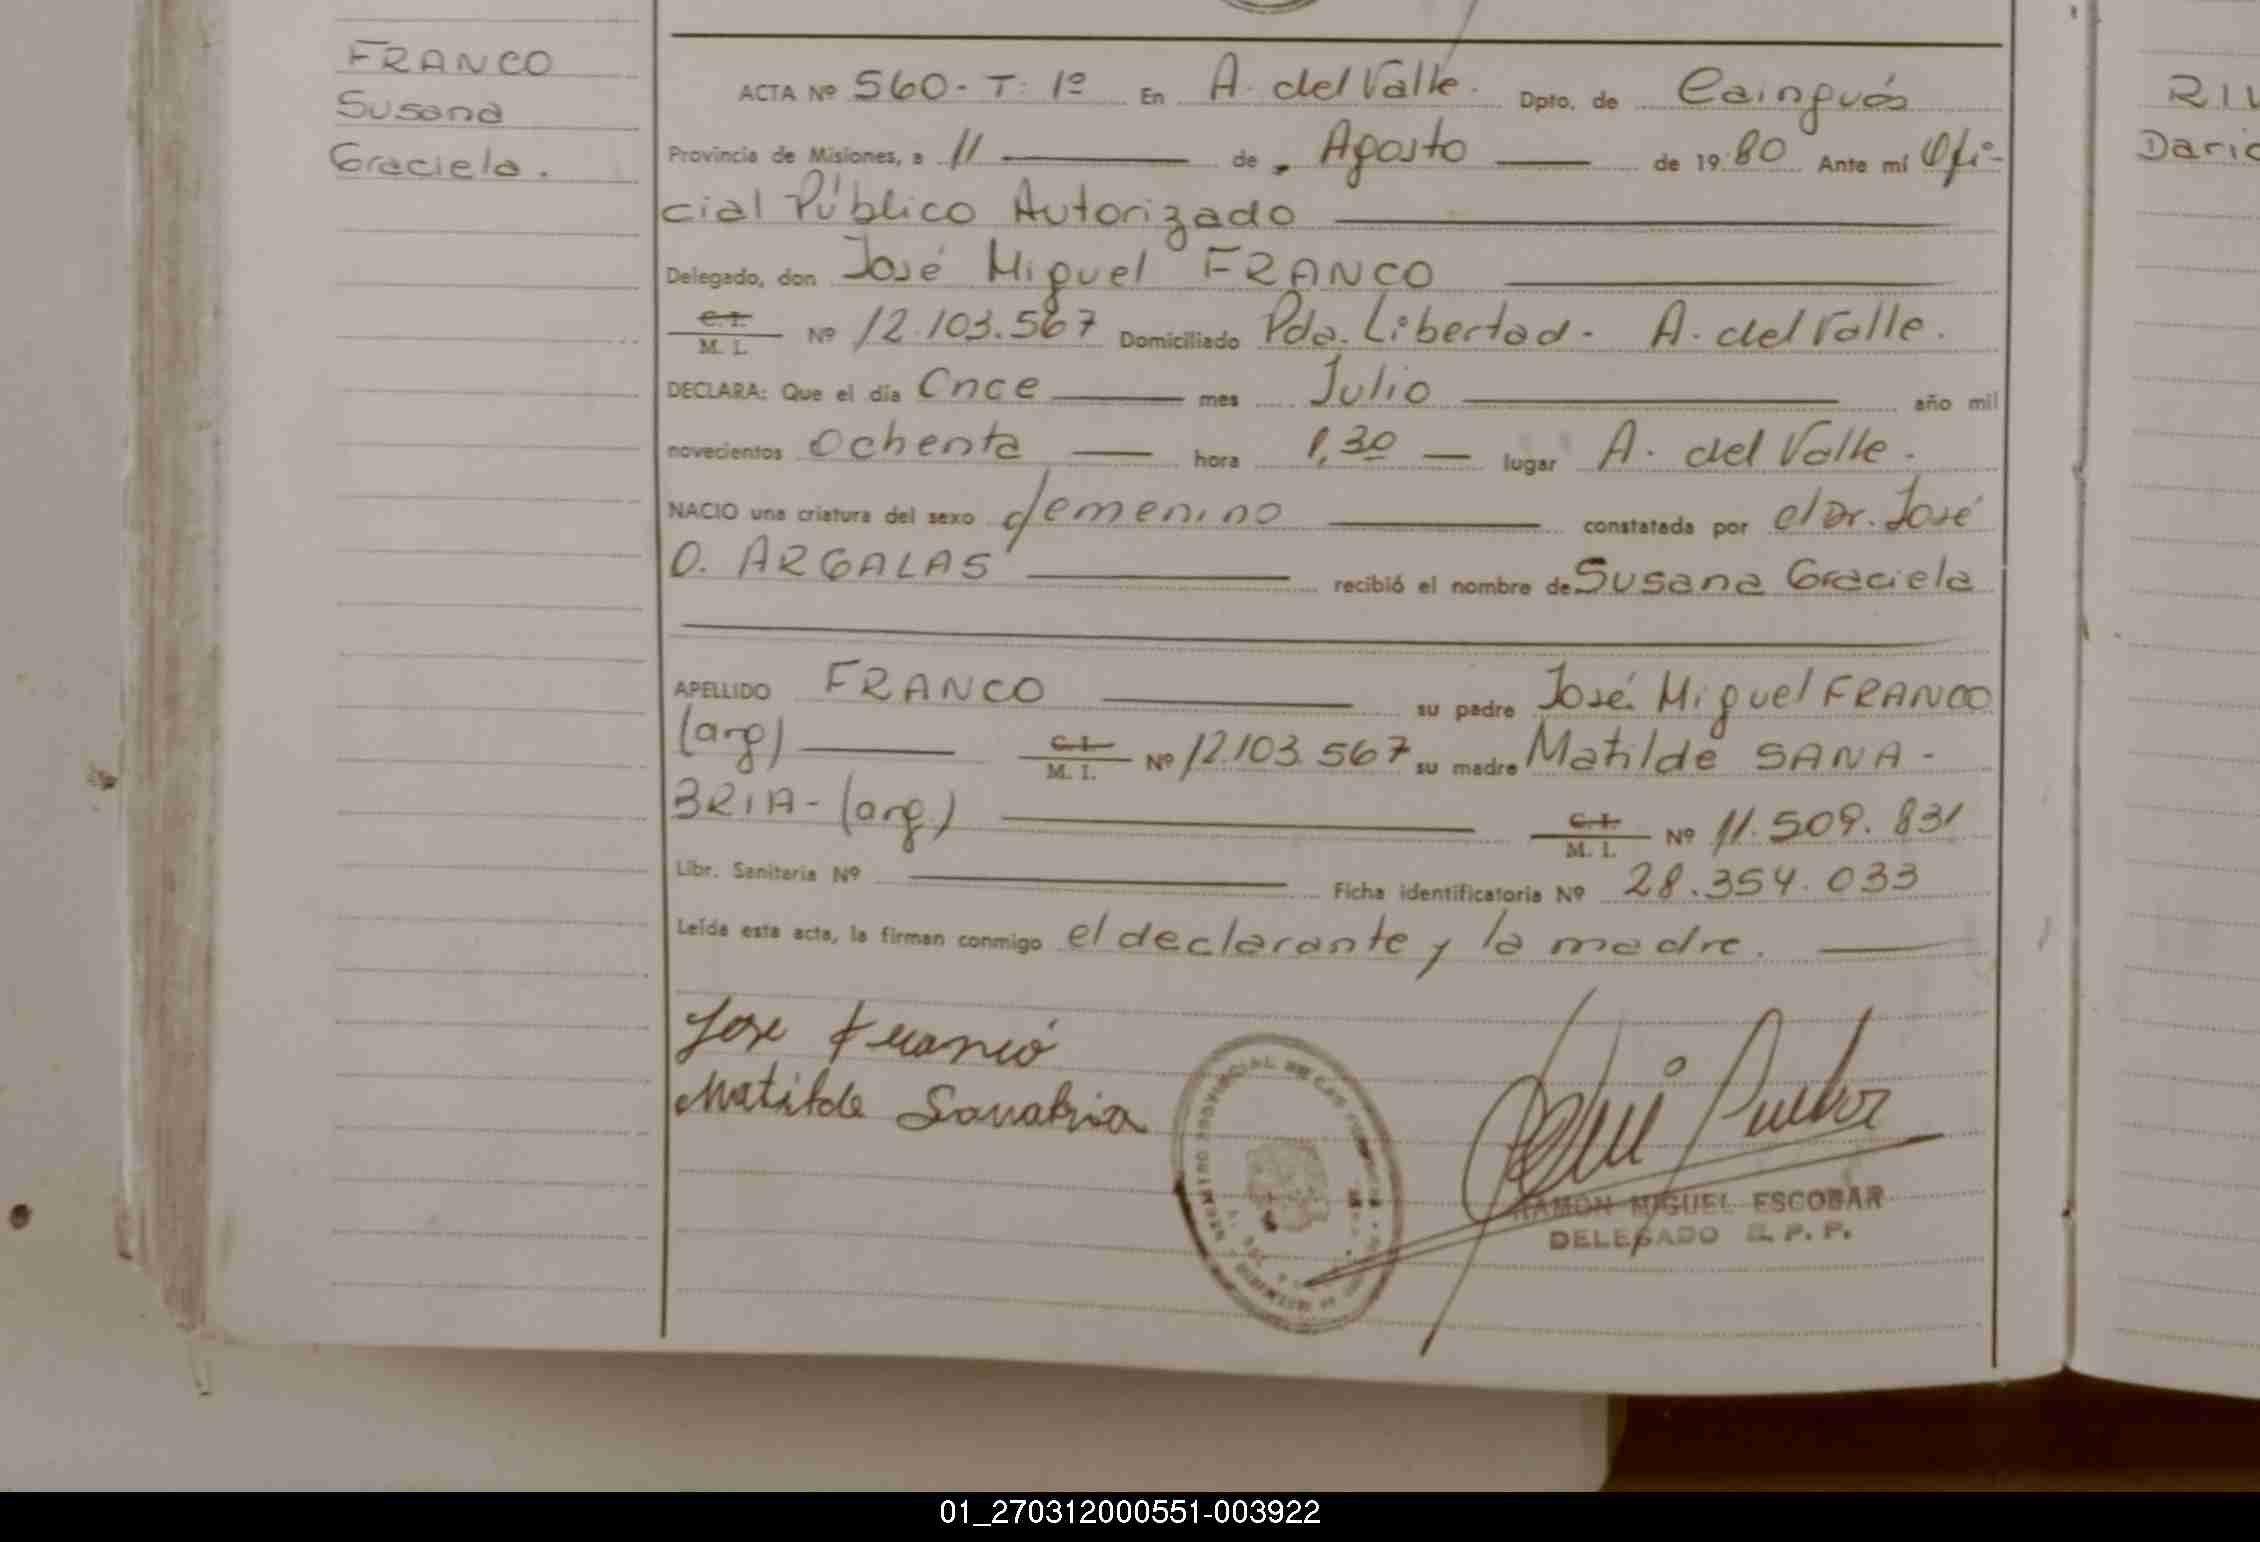 FRANCO
Susana
Graciela.
ACTA Nº 560- T: 1º En A. del Valle. Dpto. de Cainguás
Provincia de Misiones, a 11 de Agosto de 1980 Ante mí Ofi-
cial Público Autorizado
Delegado, don José Miguel FRANCO
C. I.
M. I. Nº 12.103.567 Domiciliado Pda. Libertad - A. del Valle.
DECLARA: Que el día Once mes Julio año mil
novecientos ochenta hora 1,30 lugar A. del Valle.
NACIO una criatura del sexo femenino constatada por el Dr. José
O. ARGALAS recibió el nombre de Susana Graciela
APELLIDO FRANCO su padre José Miguel FRANCO
(arg) C. I.
M. I. Nº 12.103.567 su madre Matilde SANA-
BRIA- (arg.) C. I.
M. I. Nº 11.509.831
Libr. Sanitaria Nº Ficha identificatoria Nº 28.354.033
Leída esta acta, la firman conmigo el declarante y la madre.
Jose Franco
Matilde Sanabria
RAMON MIGUEL ESCOBAR
DELEGADO R. P. P.
RIV
Dario
01_270312000551-003922